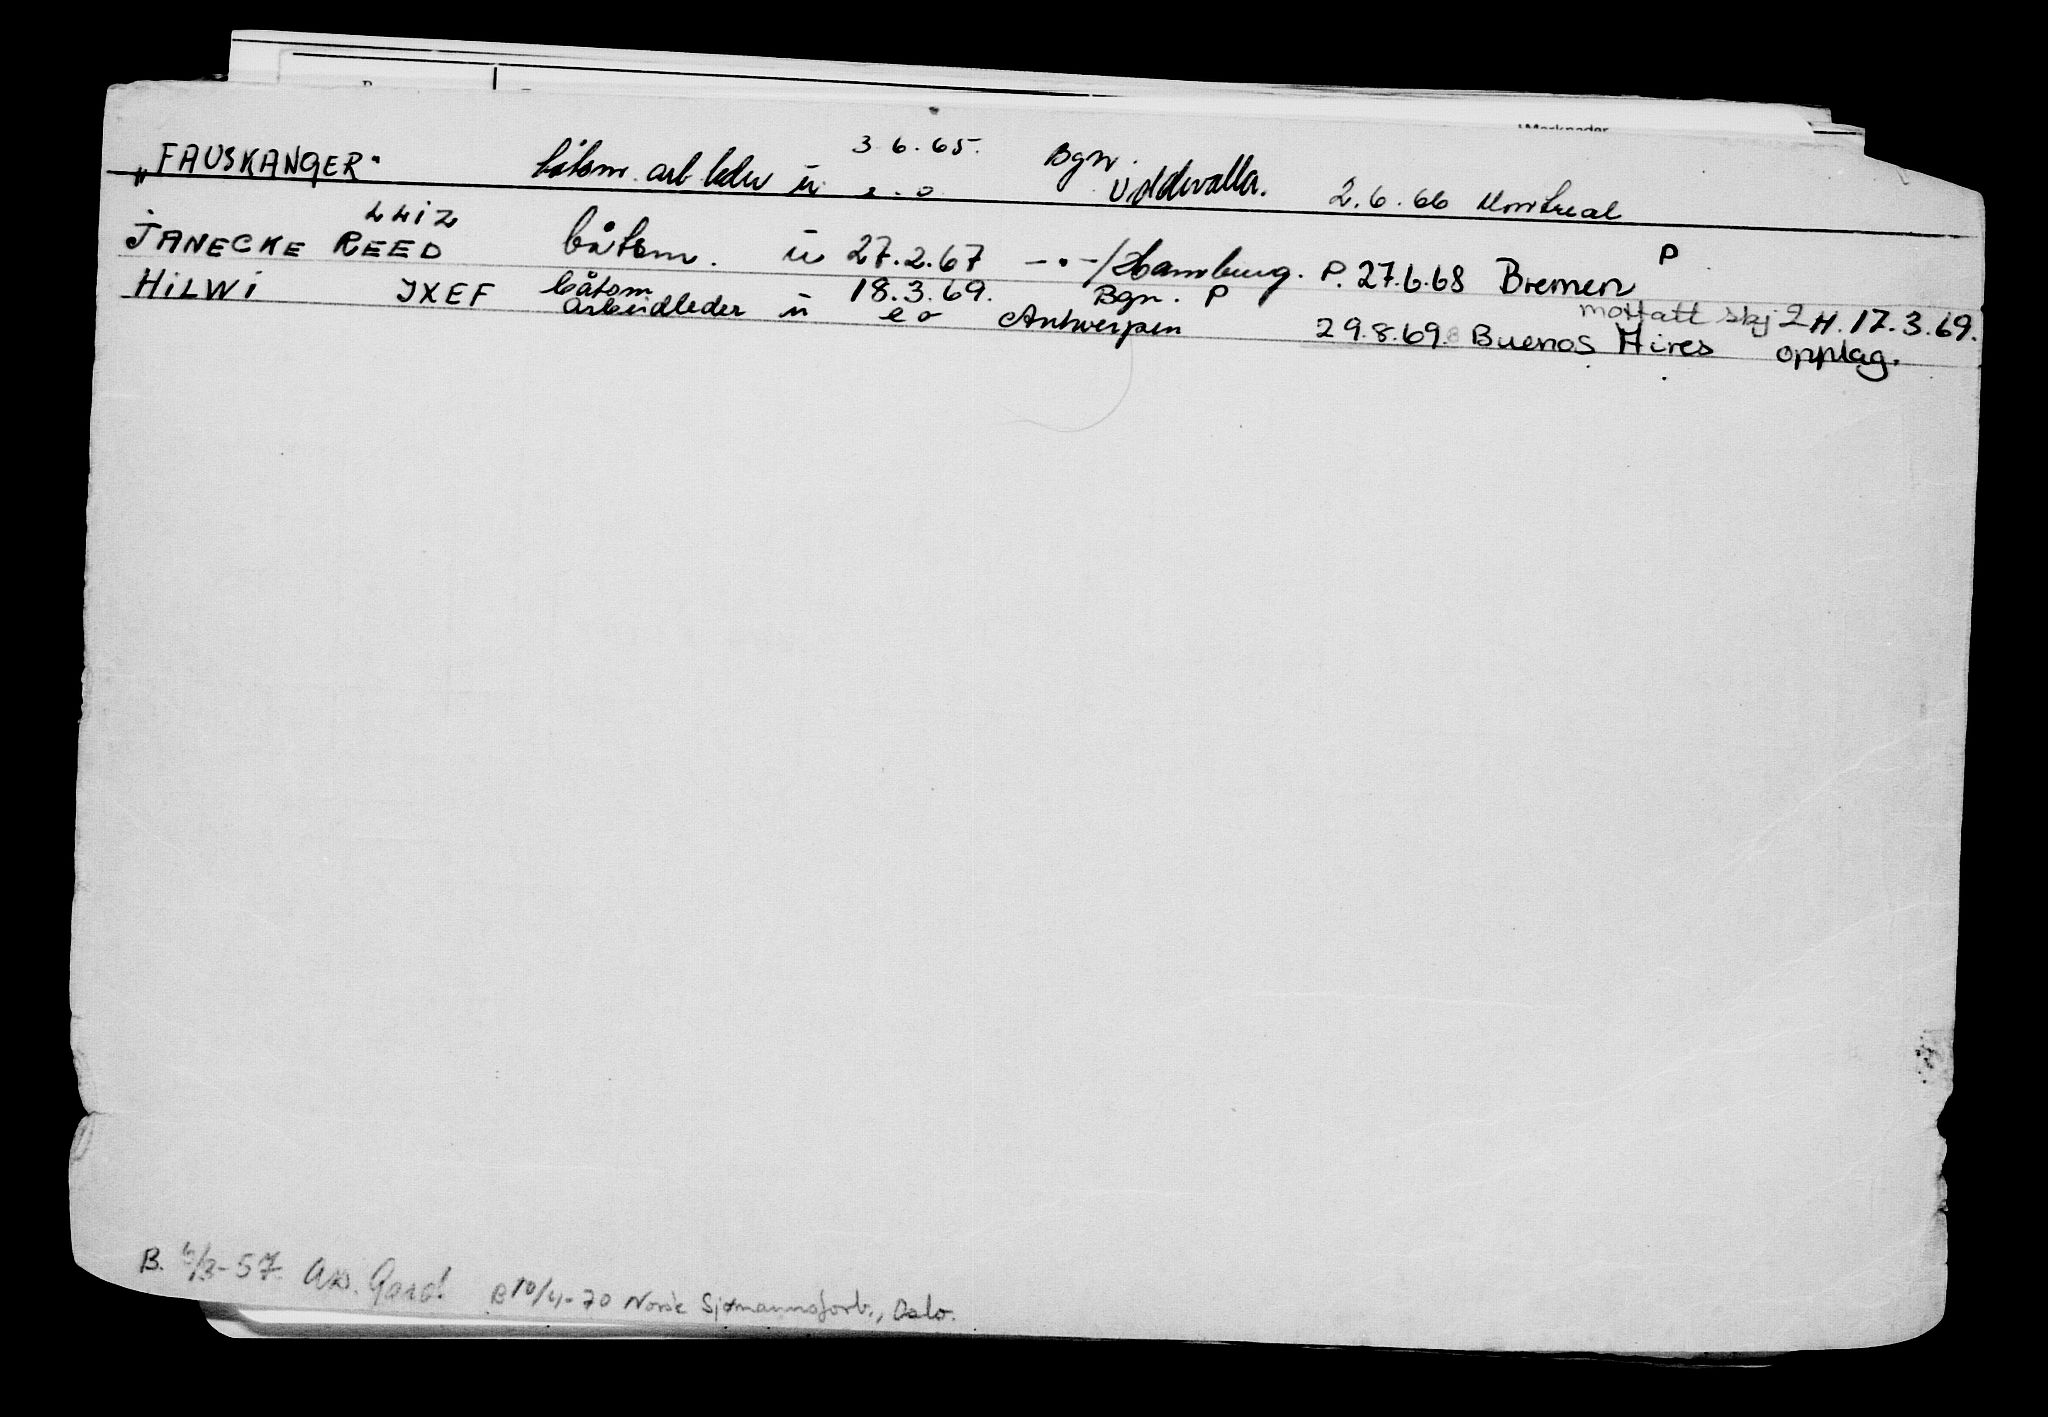 Merknader
3.6.65. Bgn.
„FAUSKANGER" båtsm. arb leder u e.o Uddevalla. 2.6.66 Montreal
LLIZ P
JANECKE REED båtsm. u 27.2.67 -"-/Hamburg. P. 27.6.68 Bremen
HILWI JXEF båtsm 18.3.69. Bgn. P mottatt skj 2H. 17.3.69.
arbeidleder u e o Antwerpen 29.8.69. Buenos Aires opplag.
B. 6/3-57 Ax. Gard B 10/4-70 Norsk Sjømannsforb., Oslo.